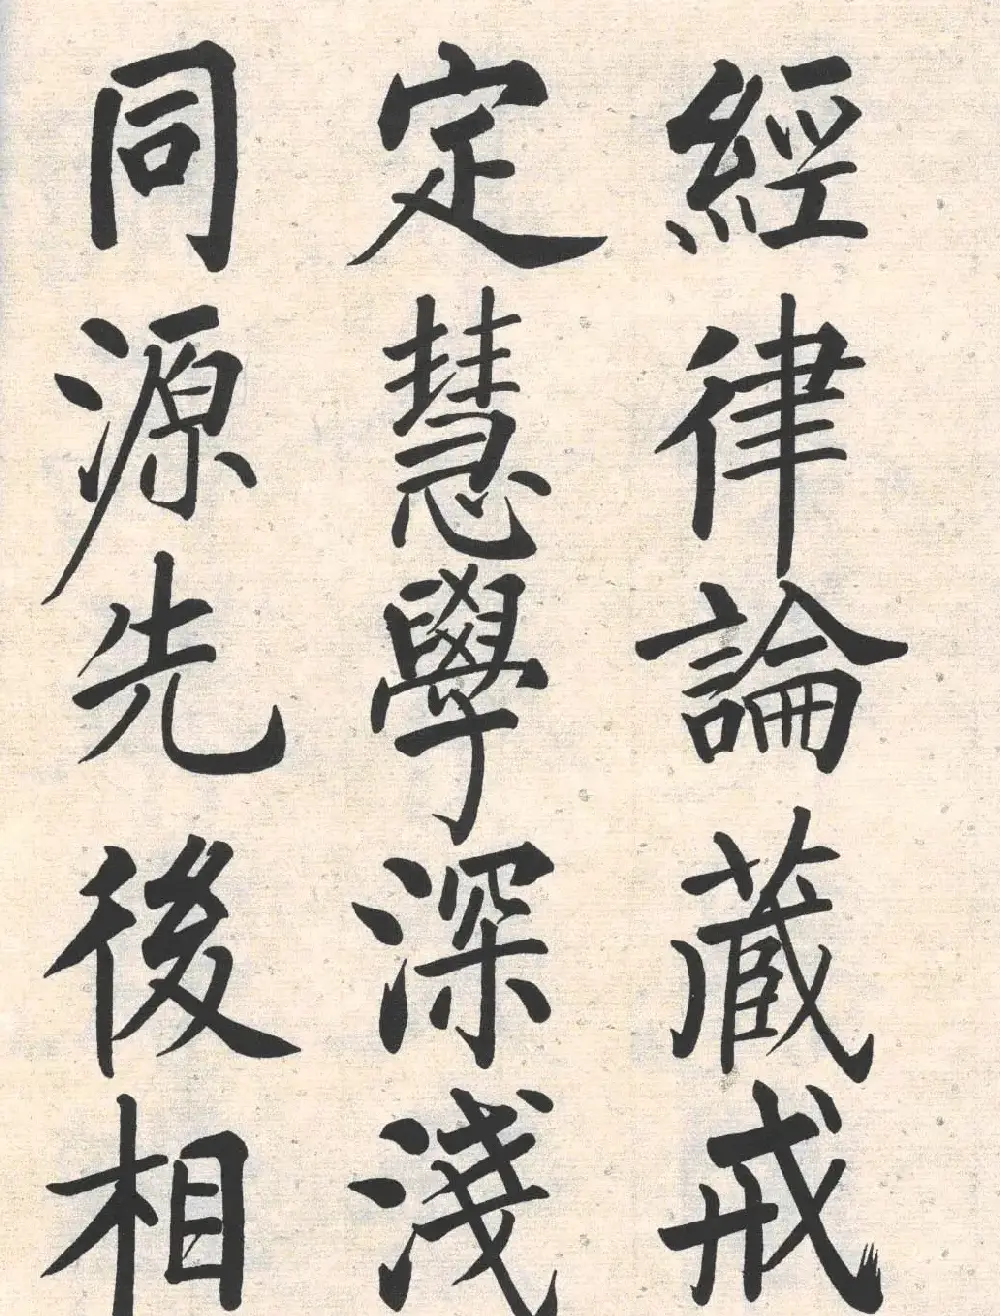 經律論藏戒
定慧學深淺
同源先後相